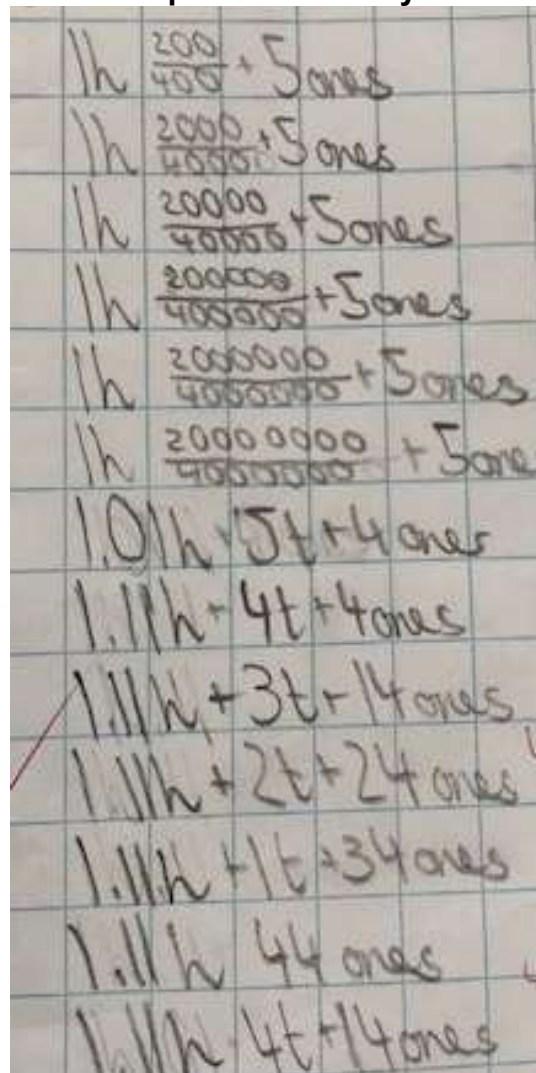 1h 200/400 + 5 ones
1h 2000/4000 + 5 ones
1h 20000/40000 + 5 ones
1h 200000/400000 + 5 ones
1h 2000000/4000000 + 5 ones
1h 20000000/4000000 + 5 one
1.01h + 5t + 4 ones
1.11h + 4t + 4 ones
1.11h + 3t + 14 ones
1.11h + 2t + 24 ones
1.11h + 1t + 34 ones
1.11h 44 ones
1.11h 4t + 14 ones